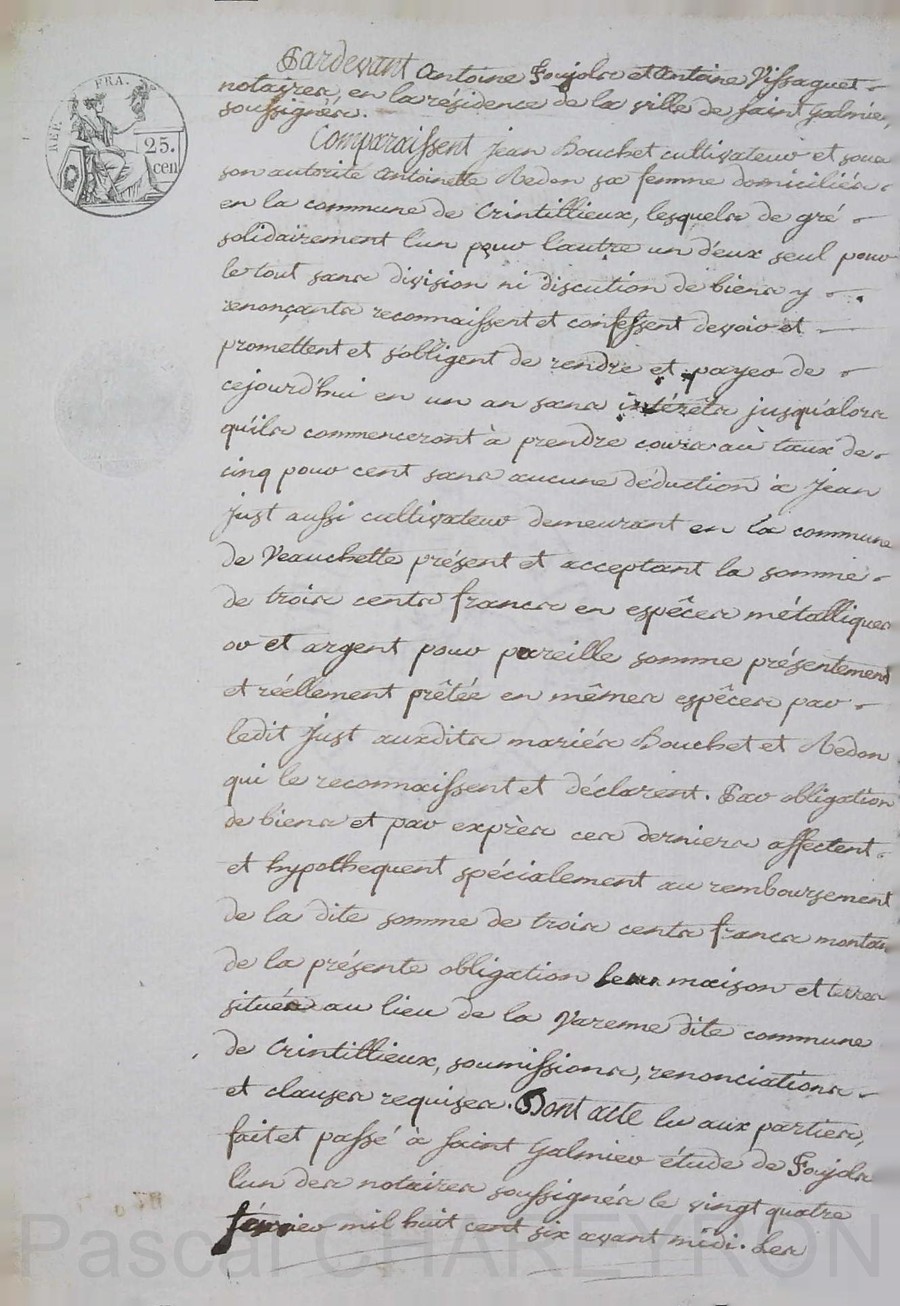 REP. FRA.
25.
cen
Pardevant Antoine Foujols et Antoine Vissaguet
notaires, en la résidence de la ville de saint Galmier,
soussignés.
Comparaissent Jean Bouchet cultivateur et sous
son autorité Antoinette Redon sa femme domiciliés
en la commune de Crintillieux, lesquels de gré
solidairement l'un pour l'autre un d'eux seul pour
le tout sans division ni discution de biens y
renonçants reconnaissent et confessent devoir et
promettent et s'obligent de rendre et payer de
cejourd'hui en un an sans intérêts jusqu'alors
qu'ils commenceront à prendre cours au taux de
cinq pour cent sans aucune déduction à Jean
Just aussi cultivateur demeurant en la commune
de Veauchette présent et acceptant la somme
de trois cents francs en espêces métalliques
or et argent pour pareille somme présentement
et réellement prêtée en mêmes espêces par
ledit Just auxdits mariés Bouchet et Redon
qui le reconnaissent et déclarent. Par obligation
de biens et par exprès ces derniers affectent
et hypothequent spécialement au remboursement
de la dite somme de trois cents francs montan
de la présente obligation leurs maison et terres
situées au lieu de la Varenne dite commune
de Crintillieux, soumissions, renonciations
et clauses requises. Dont acte lu aux parties,
fait et passé à saint Galmier étude de Foujols
l'un des notaires soussignés le vingt quatre
février mil huit cent six avant midi. Les
Pascal CHAREYRON